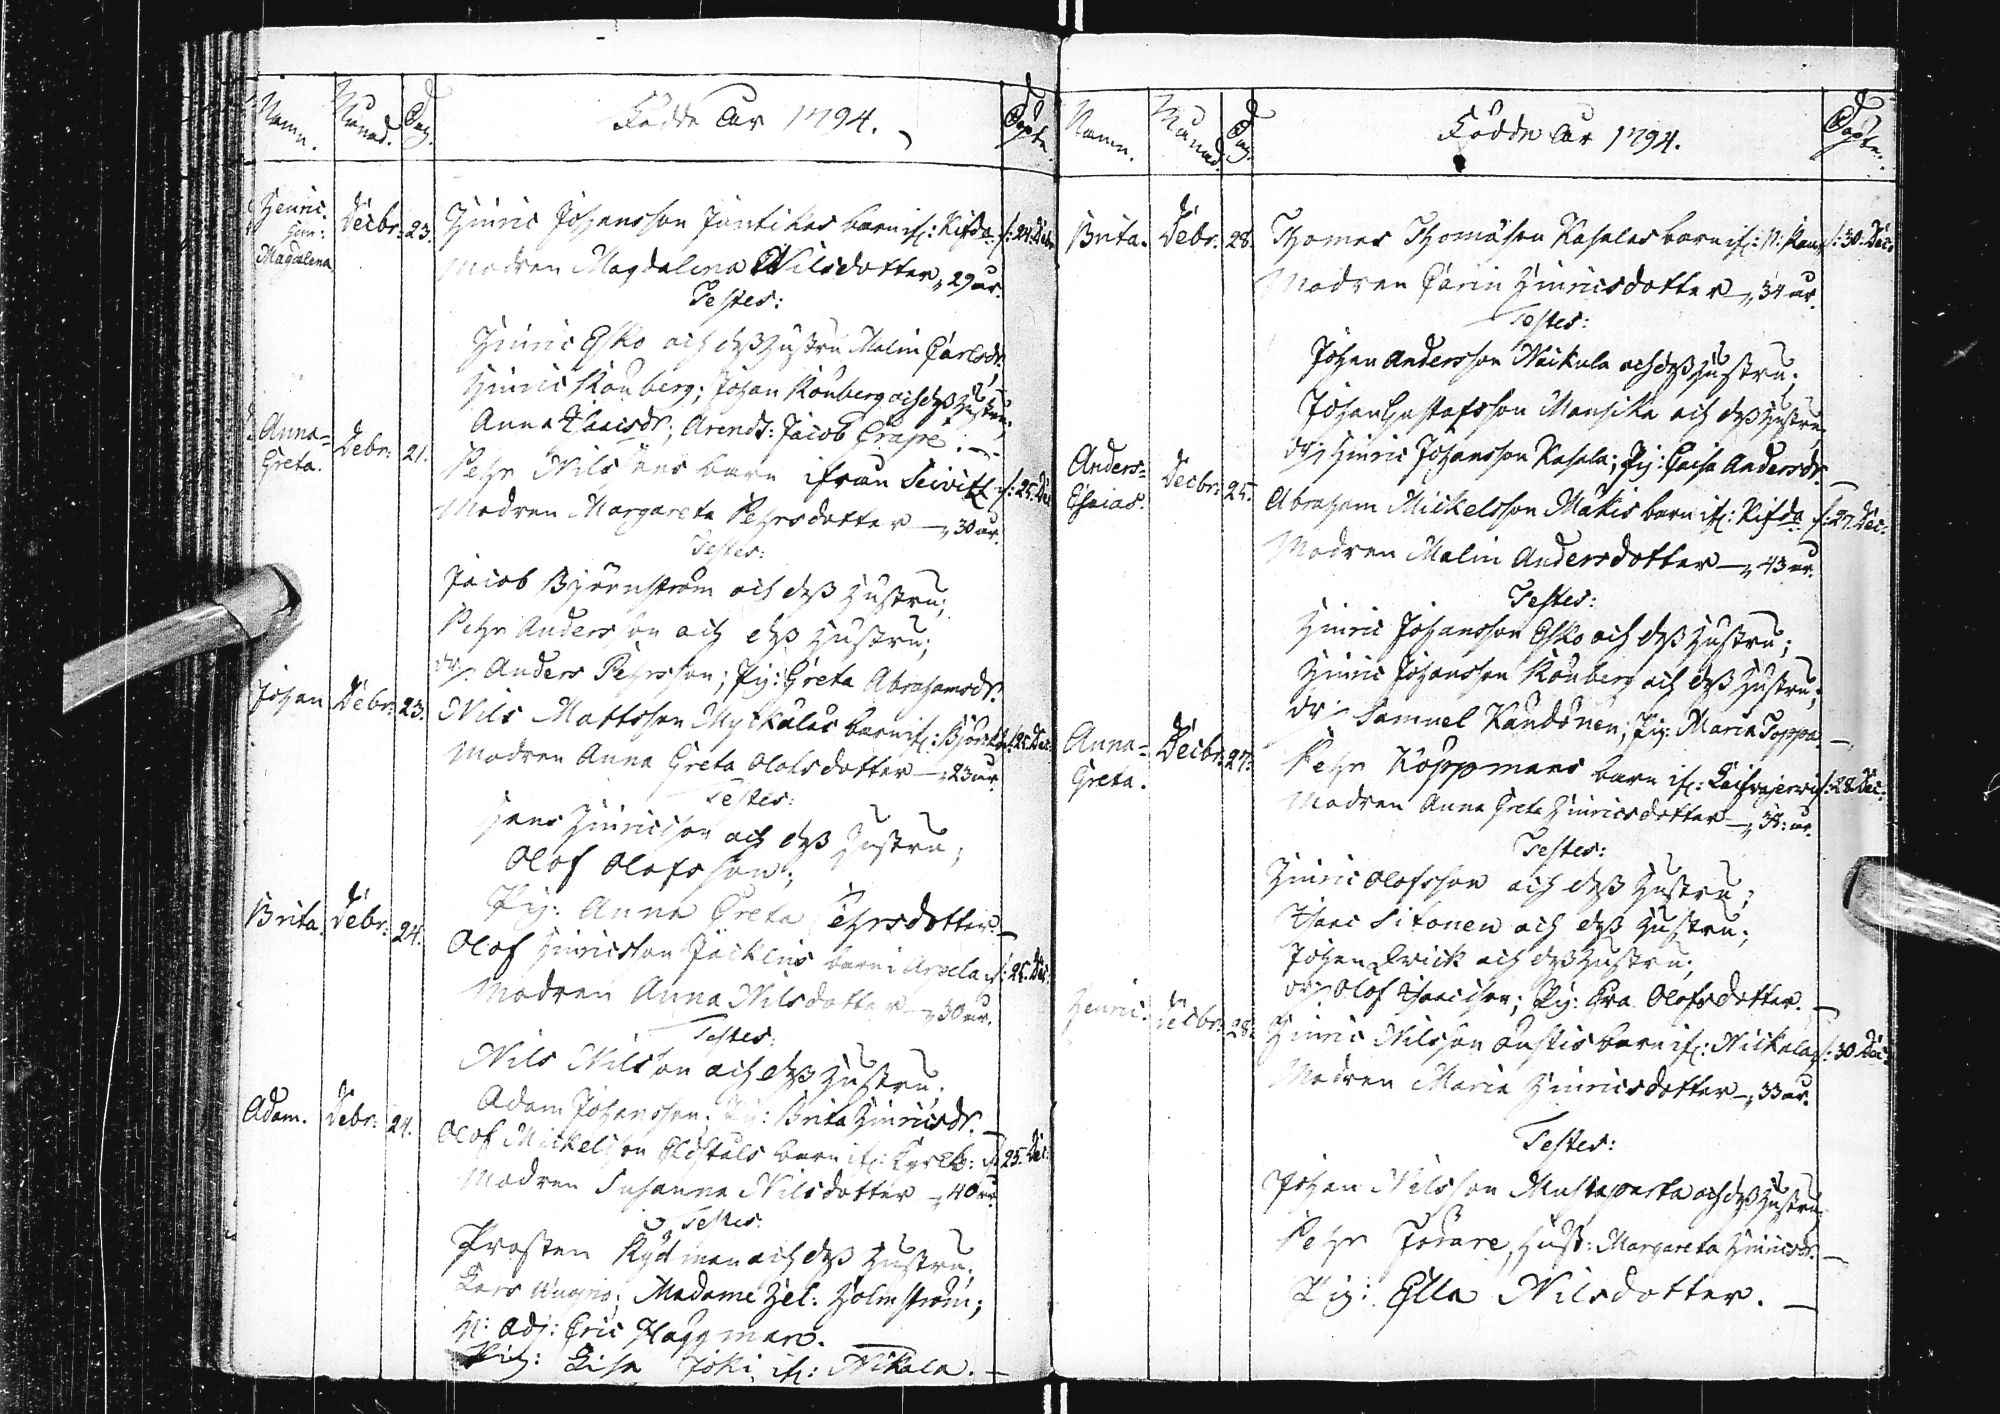 Namn. Månad. Dag. Födde År 1794. Döpte.
Henric. Decbr: 23. Hinric Johansson Jantikas barn if: d: 24. Decbr
Hun:
Magdalena Modren Magdalena Nilsdotter, 29 år.
Testes:
Hinric Esko och dess Hustru Malin Carlsdr.
Hinric Kouberg; Johan Kouberg och dess Hustru;
Anna Isacsdr; Arendt: Jacob Grape. —
Anna= Debr: 21. Pehr Nils sons barn ifrån d: 25. Dec
Greta. Modren Margareta Pehrsdotter —, 30 år.
Testes:
Jacob Björnström och dess Hustru;
Pehr Andersson och dess Hustru;
dr: Anders Pehrsson; Pig: Greta Abrahamsdr.
Johan Debr: 23. Nils Mattsson barn if: d: 25 Dec:
Modren Anna Greta Olofsdotter —, 23 år.
Testes:
Hans Hinricsson och dess Hustru;
Olof Olofsson;
Pig: Anna Greta Pehrsdotter. —
Brita. Debr: 24. Olof Hinricsson barn i Arpela d: 25. Dec:
Modren Anna Nilsdotter —, 30 år.
Testes:
Nils Nilsson och dess Hustru;
Adam Johansson; Pig: Brita Hinricsdr. —
Adam. Debr: 24. Olof Mickelsson barn if: d: 25. Dec:
Modren Susanna Nilsdotter —, 40 år.
Testes:
Prosten och dess Hustru;
Lars Madame Hel: Holmström;
H: Adj: Eric Häggman.
Pig: Lisa Joki, if: Nikala. —
Namn. Månad. Dag. Födde År 1794. Döpte.
Brita. Debr: 28. Thomas Thomasson Kasalas barn if: d: 30. Dec:
Modren Carin Hinricsdotter —, 34 år.
Testes:
Johan Andersson Näikula och dess Hustru;
Johan Gustafsson Mansika och dess Hustru,
dr: Hinric Johansson Kasala; Pig: Caisa Andersdr. —
Anders= Decbr: 25. Abraham Mickelsson Mäkis barn if: d: 27. Dec:
Esaias. Modren Malin Andersdotter —, 43 år.
Testes:
Hinric Johansson Esko och dess Hustru;
Hinric Johansson Kouberg och dess Hustru;
dr: Samuel Pig: Maria Toppa —
Anna= Decbr: 27. Pehr Koppmans barn if: d: 28. Dec:
Greta. Modren Anna Greta Hinricsdotter —, 38: år.
Testes:
Hinric Olofsson och dess Hustru;
Isaac Sitonen och dess Hustru;
Johan och dess Hustru;
dr: Olof Isacsson; Pig: Eva Olofsdotter. —
Henric. Decbr: 28. Hinric Nilsson barn if: Nickala d: 30 Dec:
Modren Maria Hinricsdotter —, 33 år.
Testes:
Johan Nilsson Mustaparta och dess Hustru;
Pehr Hust: Margareta Hinricsdr. —
Pig: Ella Nilsdotter. —